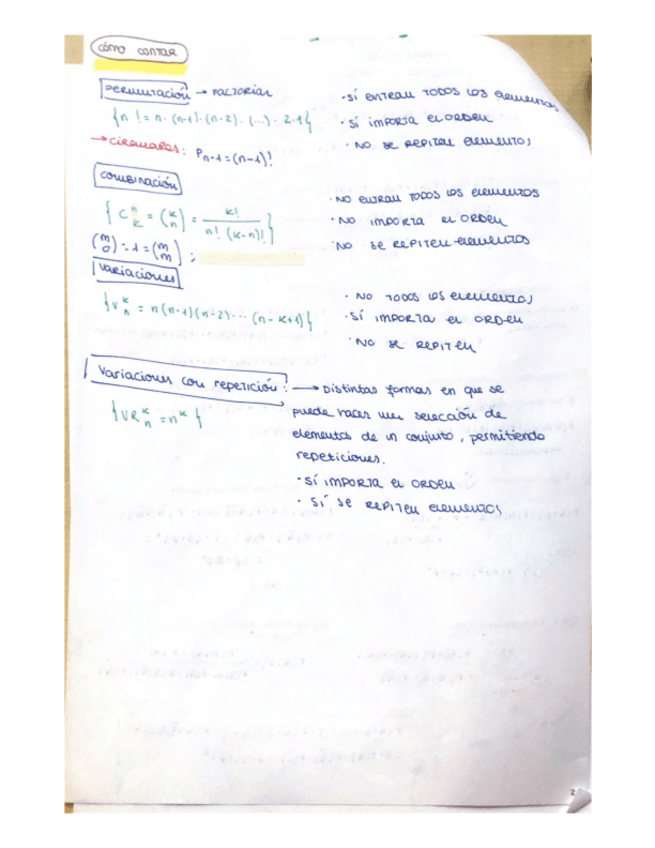 cómo contar
Permutación → Factorial
{n! = n · (n-1) · (n-2) · (...) · 2 · 1}
→ circulares: Pn-1 = (n-1)!
· SÍ ENTRAN TODOS LOS elementos
· SÍ IMPORTA EL ORDEN
· NO SE REPITEN elementos
combinación
{C^n_k = (k n) = k! / n! (k-n)!}
(m 0) = 1 = (m m) ;
· NO ENTRAN TODOS LOS elementos
· NO IMPORTA EL ORDEN
· NO SE REPITEN elementos
Variaciones
{V^k_n = n(n-1)(n-2)...(n-k+1)}
· NO TODOS LOS elementos
· SÍ IMPORTA EL ORDEN
· NO SE REPITEN
Variaciones con repetición: → Distintas formas en que se
puede hacer una selección de
elementos de un conjunto, permitiendo
repeticiones.
{VR^k_n = n^k}
· SÍ IMPORTA EL ORDEN
· SÍ SE REPITEN elementos
2